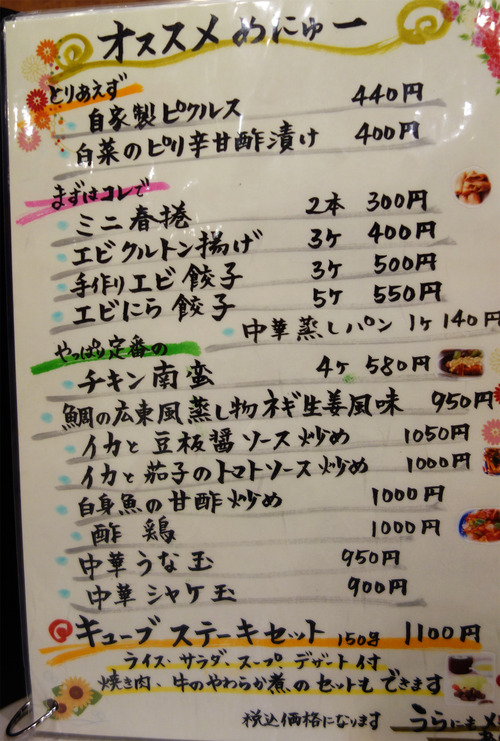 オススメ めにゅー
とりあえず
自家製ピクルス 440円
白菜のピリ辛甘酢漬け 400円
まずはコレで
ミニ春捲 2本 300円
エビクルトン揚げ 3ケ 400円
手作りエビ餃子 3ケ 500円
エビにら餃子 5ケ 550円
中華蒸しパン 1ケ 140円
やっぱり定番の
チキン南蛮 4ケ 580円
鯛の広東風蒸し物ネギ生姜風味 950円
イカと豆板醤ソース炒め 1050円
イカと茄子のトマトソース炒め 1000円
白身魚の甘酢炒め 1000円
酢鶏 1000円
中華うな玉 950円
中華シャケ玉 900円
キューブステーキセット 150g 1100円
ライス、サラダ、スープ、デザート付
焼き肉、牛のやわらか煮のセットもできます
税込価格になります うらにも